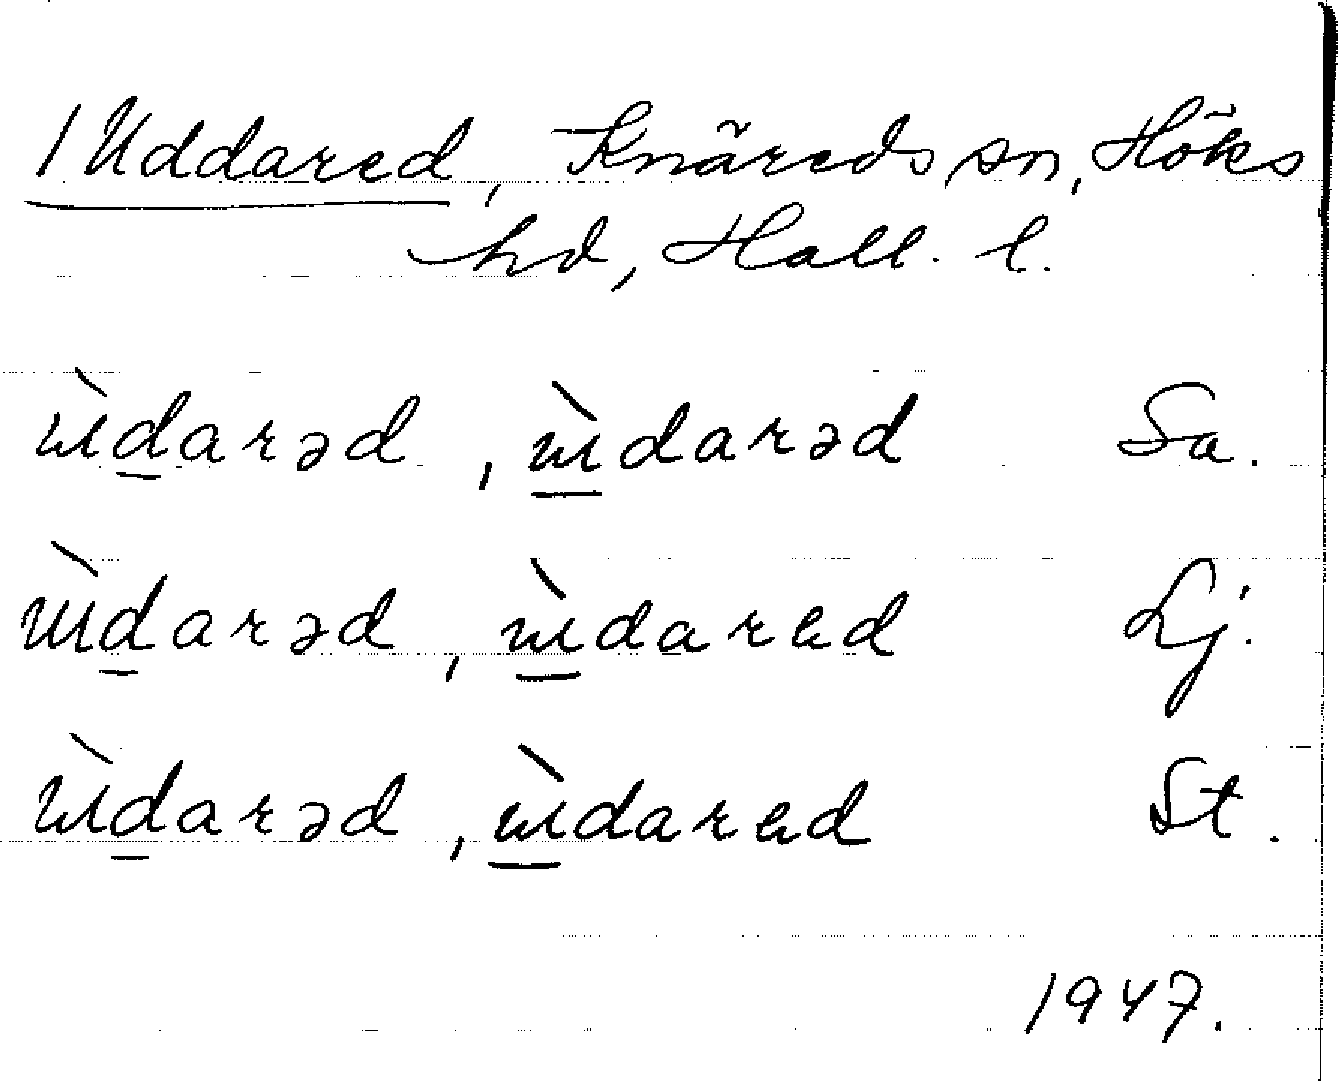 1 Uddared, Knäreds sn, Höks
hd, Hall. l.
ɯ̀d̲arəd, ɯ̲̀darəd Sa.
ɯ̀d̲arəd, ɯ̲̀darɐd Lj.
ɯ̀d̲arəd, ɯ̲̀darɐd St.
1947.